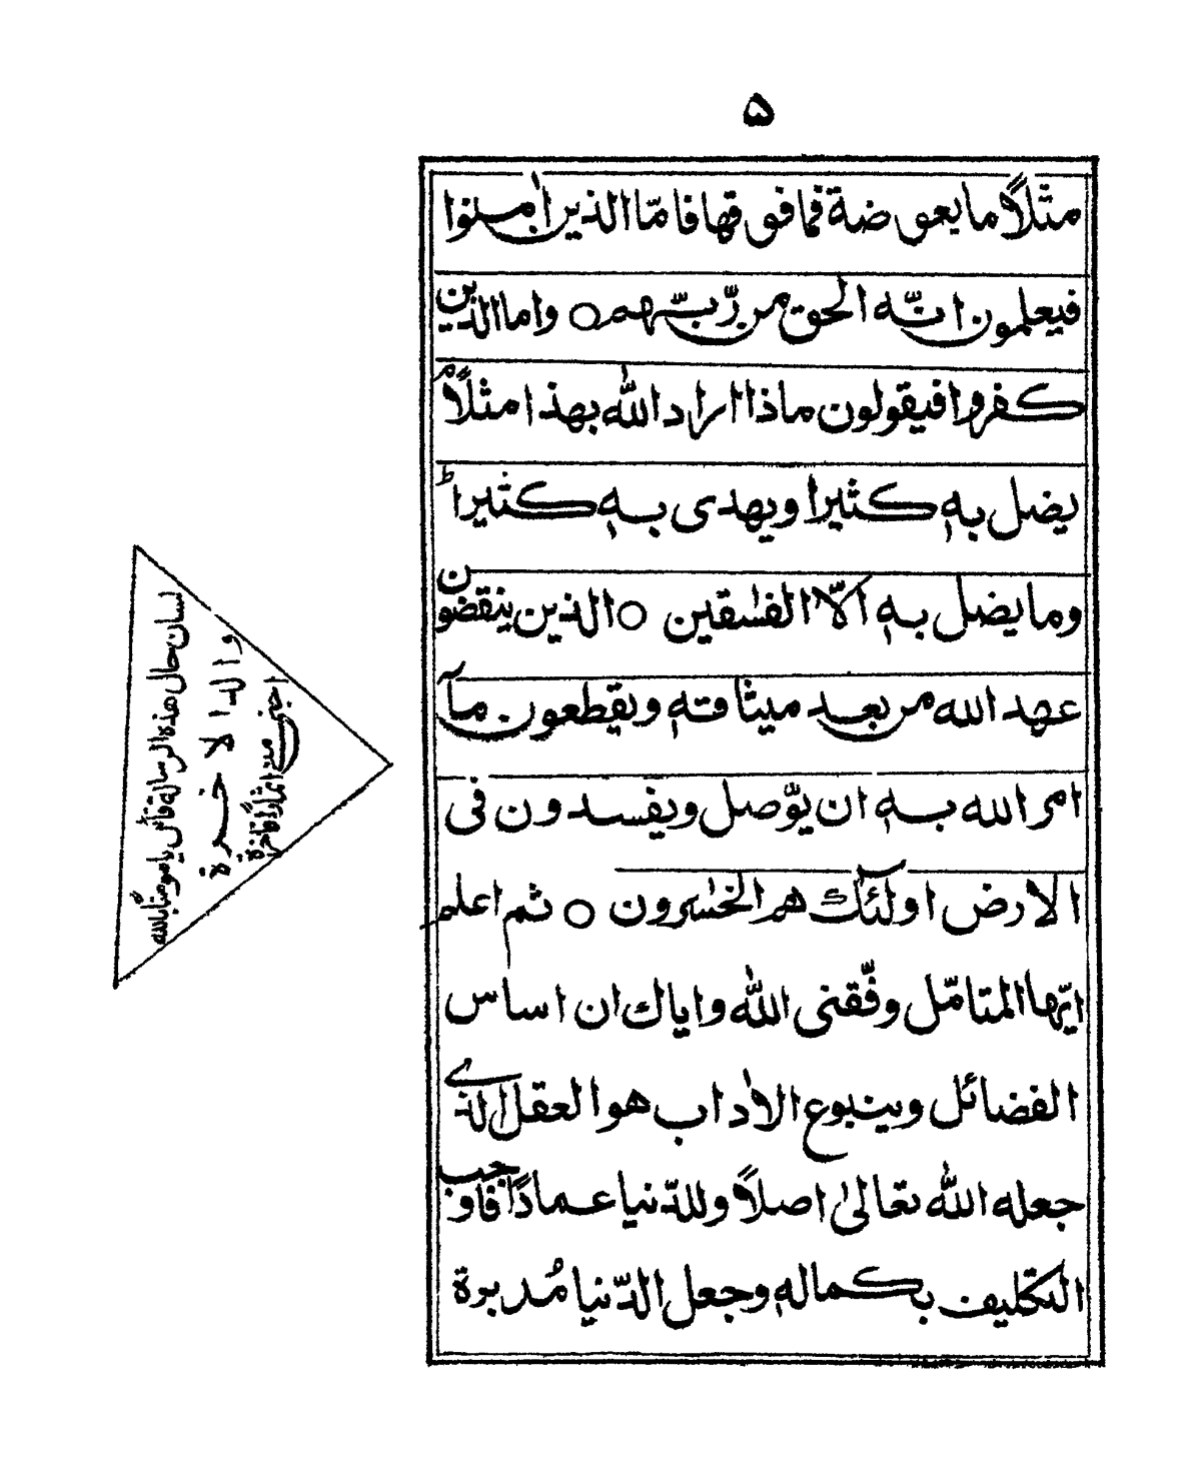 ۵
مثلاً ما يعوضة فما فوقها فامّا الذين اٰمنوا
فيعلمون انّه الحق من رّبّهم ○ واما الذين
كفروا فيقولون ماذا اراد اللّٰه بهذا مثلاًۘ
يضل بهٖ كثيرا ويهدى بهٖ كثيراؕ
وما يضل بهٖ الّا الفٰسقين ○ الذين ينقضون
عهد الله من بعد ميثاقهٖ ويقطعون مآ
امر الله بهٖ ان يّوصل ويفسدون فى
الارض اولٰٓئك هم الخٰسرون ○ ثم اعلم
ايّها المتامّل وفّقنى اللّٰه واياك ان اساس
الفضائل وينبوع الاٰداب هو العقل الذے
جعله اللّٰه تعالىٰ اصلاً وللدّنيا عمادًا فاوجب
التكليف بكمالهٖ وجعل الدّنيا مُدبرة
لسان حال هذه الرسالة قائل يا مومنًا بالله
و الدا الاخرة
اجنى من اثمارًا فاخرة